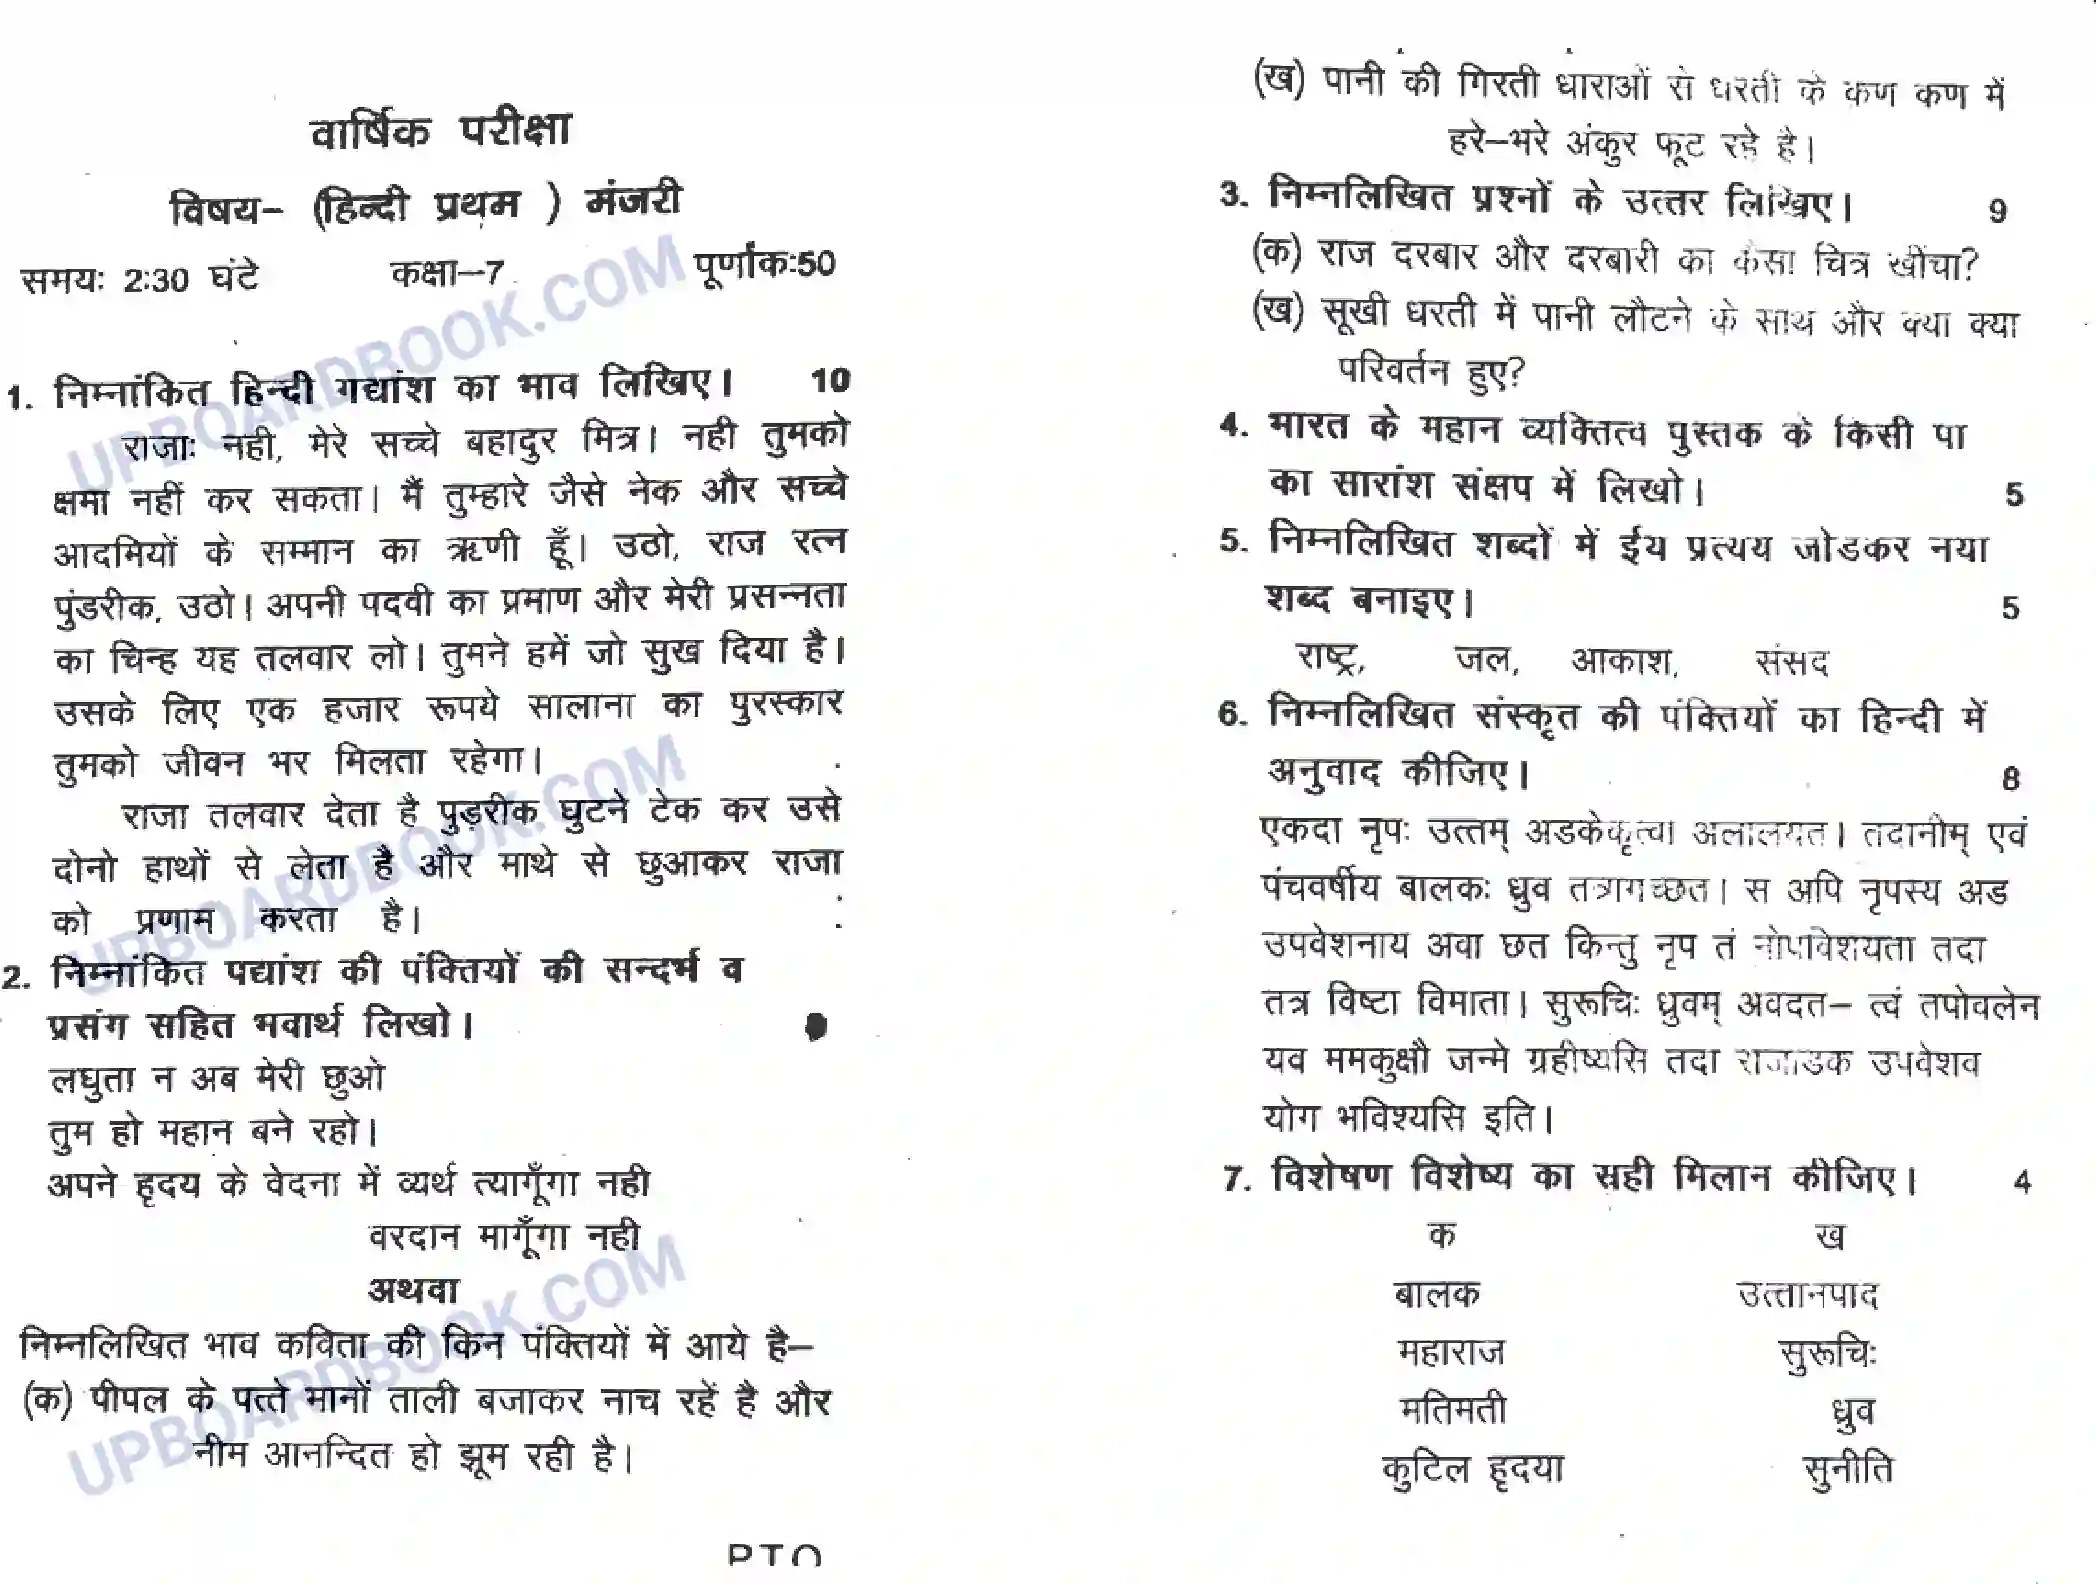 वार्षिक परीक्षा
विषय– (हिन्दी प्रथम ) मंजरी
समयः 2:30 घंटे कक्षा–7 पूर्णांक:50
1. निम्नांकित हिन्दी गद्यांश का भाव लिखिए। 10
राजाः नही, मेरे सच्चे बहादुर मित्र। नही तुमको
क्षमा नहीं कर सकता। मैं तुम्हारे जैसे नेक और सच्चे
आदमियों के सम्मान का ऋणी हूँ। उठो, राज रत्न
पुंडरीक, उठो। अपनी पदवी का प्रमाण और मेरी प्रसन्नता
का चिन्ह यह तलवार लो। तुमने हमें जो सुख दिया है।
उसके लिए एक हजार रूपये सालाना का पुरस्कार
तुमको जीवन भर मिलता रहेगा।
राजा तलवार देता है पुड़रीक घुटने टेक कर उसे
दोनो हाथों से लेता है और माथे से छुआकर राजा
को प्रणाम करता है।
2. निम्नांकित पद्यांश की पंक्तियों की सन्दर्भ व
प्रसंग सहित भवार्थ लिखो।
लघुता न अब मेरी छुओ
तुम हो महान बने रहो।
अपने हृदय के वेदना में व्यर्थ त्यागूँगा नही
वरदान मागूँगा नही
अथवा
निम्नलिखित भाव कविता की किन पंक्तियों में आये है–
(क) पीपल के पत्ते मानों ताली बजाकर नाच रहें है और
नीम आनन्दित हो झूम रही है।
PTO
(ख) पानी की गिरती धाराओं से धरती के कण कण में
हरे–भरे अंकुर फूट रहे है।
3. निम्नलिखित प्रश्नों के उत्तर लिखिए। 9
(क) राज दरबार और दरबारी का कैसा चित्र खींचा?
(ख) सूखी धरती में पानी लौटने के साथ और क्या क्या
परिवर्तन हुए?
4. भारत के महान व्यक्तित्व पुस्तक के किसी पा
का सारांश संक्षप में लिखो। 5
5. निम्नलिखित शब्दों में ईय प्रत्यय जोडकर नया
शब्द बनाइए। 5
राष्ट्र, जल, आकाश, संसद
6. निम्नलिखित संस्कृत की पंक्तियों का हिन्दी में
अनुवाद कीजिए। 8
एकदा नृपः उत्तम् अडकेकृत्वा अलालयत। तदानीम् एवं
पंचवर्षीय बालकः ध्रुव तत्रागच्छत। स अपि नृपस्य अड
उपवेशनाय अवा छत किन्तु नृप तं नोपविशयता तदा
तत्र विष्टा विमाता। सुरूचिः ध्रुवम् अवदत– त्वं तपोवलेन
यव ममकुक्षौ जन्मे ग्रहीष्यसि तदा राजाडक उपवेशव
योग भविश्यसि इति।
7. विशेषण विशेष्य का सही मिलान कीजिए। 4
क ख
बालक उत्तानपाद
महाराज सुरूचिः
मतिमती ध्रुव
कुटिल हृदया सुनीति
UPBOARDBOOK.COM
UPBOARDBOOK.COM
UPBOARDBOOK.COM